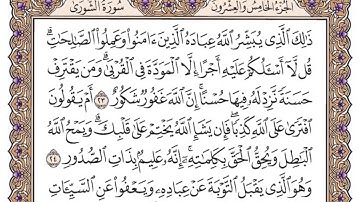 سُورَةُ الشُّورَىٰ الجُزْءُ الخَامِسُ وَالعِشْرُونَ
ذَٰلِكَ ٱلَّذِى يُبَشِّرُ ٱللَّهُ عِبَادَهُ ٱلَّذِينَ ءَامَنُوا۟ وَعَمِلُوا۟ ٱلصَّٰلِحَٰتِۗ
قُل لَّآ أَسْـَٔلُكُمْ عَلَيْهِ أَجْرًا إِلَّا ٱلْمَوَدَّةَ فِى ٱلْقُرْبَىٰۗ وَمَن يَقْتَرِفْ
حَسَنَةً نَّزِدْ لَهُۥ فِيهَا حُسْنًاۚ إِنَّ ٱللَّهَ غَفُورٌ شَكُورٌ ٢٣ أَمْ يَقُولُونَ
ٱفْتَرَىٰ عَلَى ٱللَّهِ كَذِبًاۖ فَإِن يَشَإِ ٱللَّهُ يَخْتِمْ عَلَىٰ قَلْبِكَۗ وَيَمْحُ ٱللَّهُ
ٱلْبَٰطِلَ وَيُحِقُّ ٱلْحَقَّ بِكَلِمَٰتِهِۦٓۚ إِنَّهُۥ عَلِيمٌۢ بِذَاتِ ٱلصُّدُورِ ٢٤
وَهُوَ ٱلَّذِى يَقْبَلُ ٱلتَّوْبَةَ عَنْ عِبَادِهِۦ وَيَعْفُوا۟ عَنِ ٱلسَّيِّـَٔاتِ